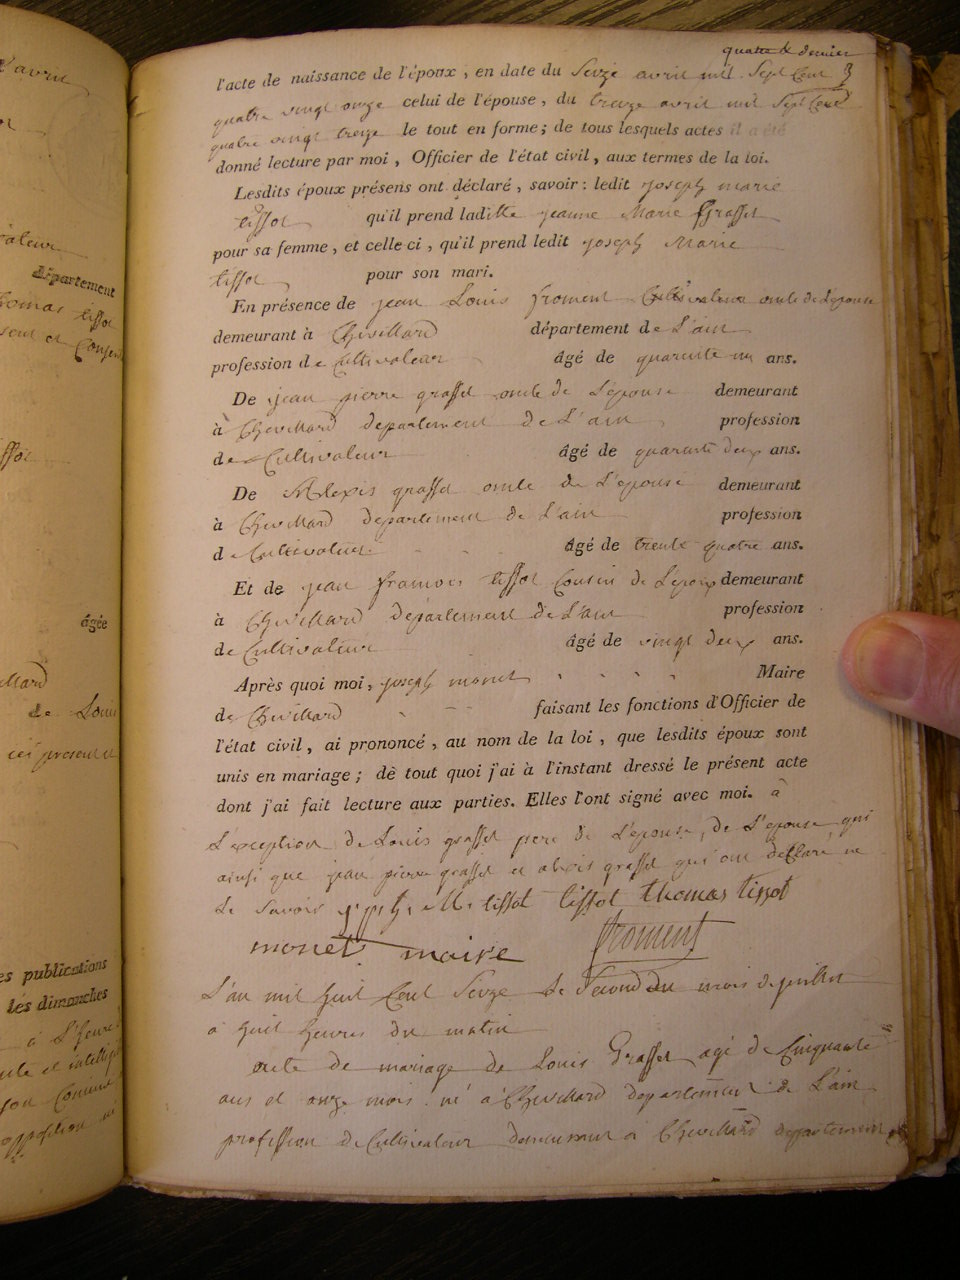 quatre & dernier
l'acte de naissance de l'époux, en date du Seize avril mil Sept Cent
quatre vingt onze celui de l'épouse, du treize avril mil Sept Cent
quatre vingt treize le tout en forme; de tous lesquels actes il a été
donné lecture par moi, Officier de l'état civil, aux termes de la loi.
Lesdits époux présens ont déclaré, savoir: ledit joseph marie
tissot qu'il prend laditte jeanne Marie Grasset
pour sa femme, et celle-ci, qu'il prend ledit joseph Marie
tissot pour son mari.
En présence de jean Louis froment Cultivateur oncle de Lepouse
demeurant à Chevillard département de L'ain
profession de Cultivateur âgé de quarente un ans.
De jean pierre grasset oncle de L'épouse demeurant
à Chevillard departement de L'ain profession
de Cultivateur âgé de quarante deux ans.
De Alexis grasset oncle de L'epouse demeurant
à Chevillard departement de L'ain profession
de Cultivateur âgé de trente quatre ans.
Et de jean francois tissot Cousin de Lepoux demeurant
à Chevillard département de L'ain profession
de Cultivateur âgé de vingt deux ans.
Après quoi moi, joseph monet Maire
de Chevillard faisant les fonctions d'Officier de
l'état civil, ai prononcé, au nom de la loi, que lesdits époux sont
unis en mariage; de tout quoi j'ai à l'instant dressé le présent acte
dont j'ai fait lecture aux parties. Elles l'ont signé avec moi. à
L'exception de Louis grasset pere de L'epouse, de L'epouse
ainsi que jean pierre grasset et alexis grasset qui ont déclaré ne
Le Savoir j.ph. M. tissot tissot thomas tissot
monet maire froment
L'an mil huit Cent Seize Le Second du mois de juillet
à huit heures du matin
acte de mariage de Louis Grasset agé de Cinquante
ans et onze mois né à Chevillard departement de L'ain
profession de Cultivateur demeurant à Chevillard departement